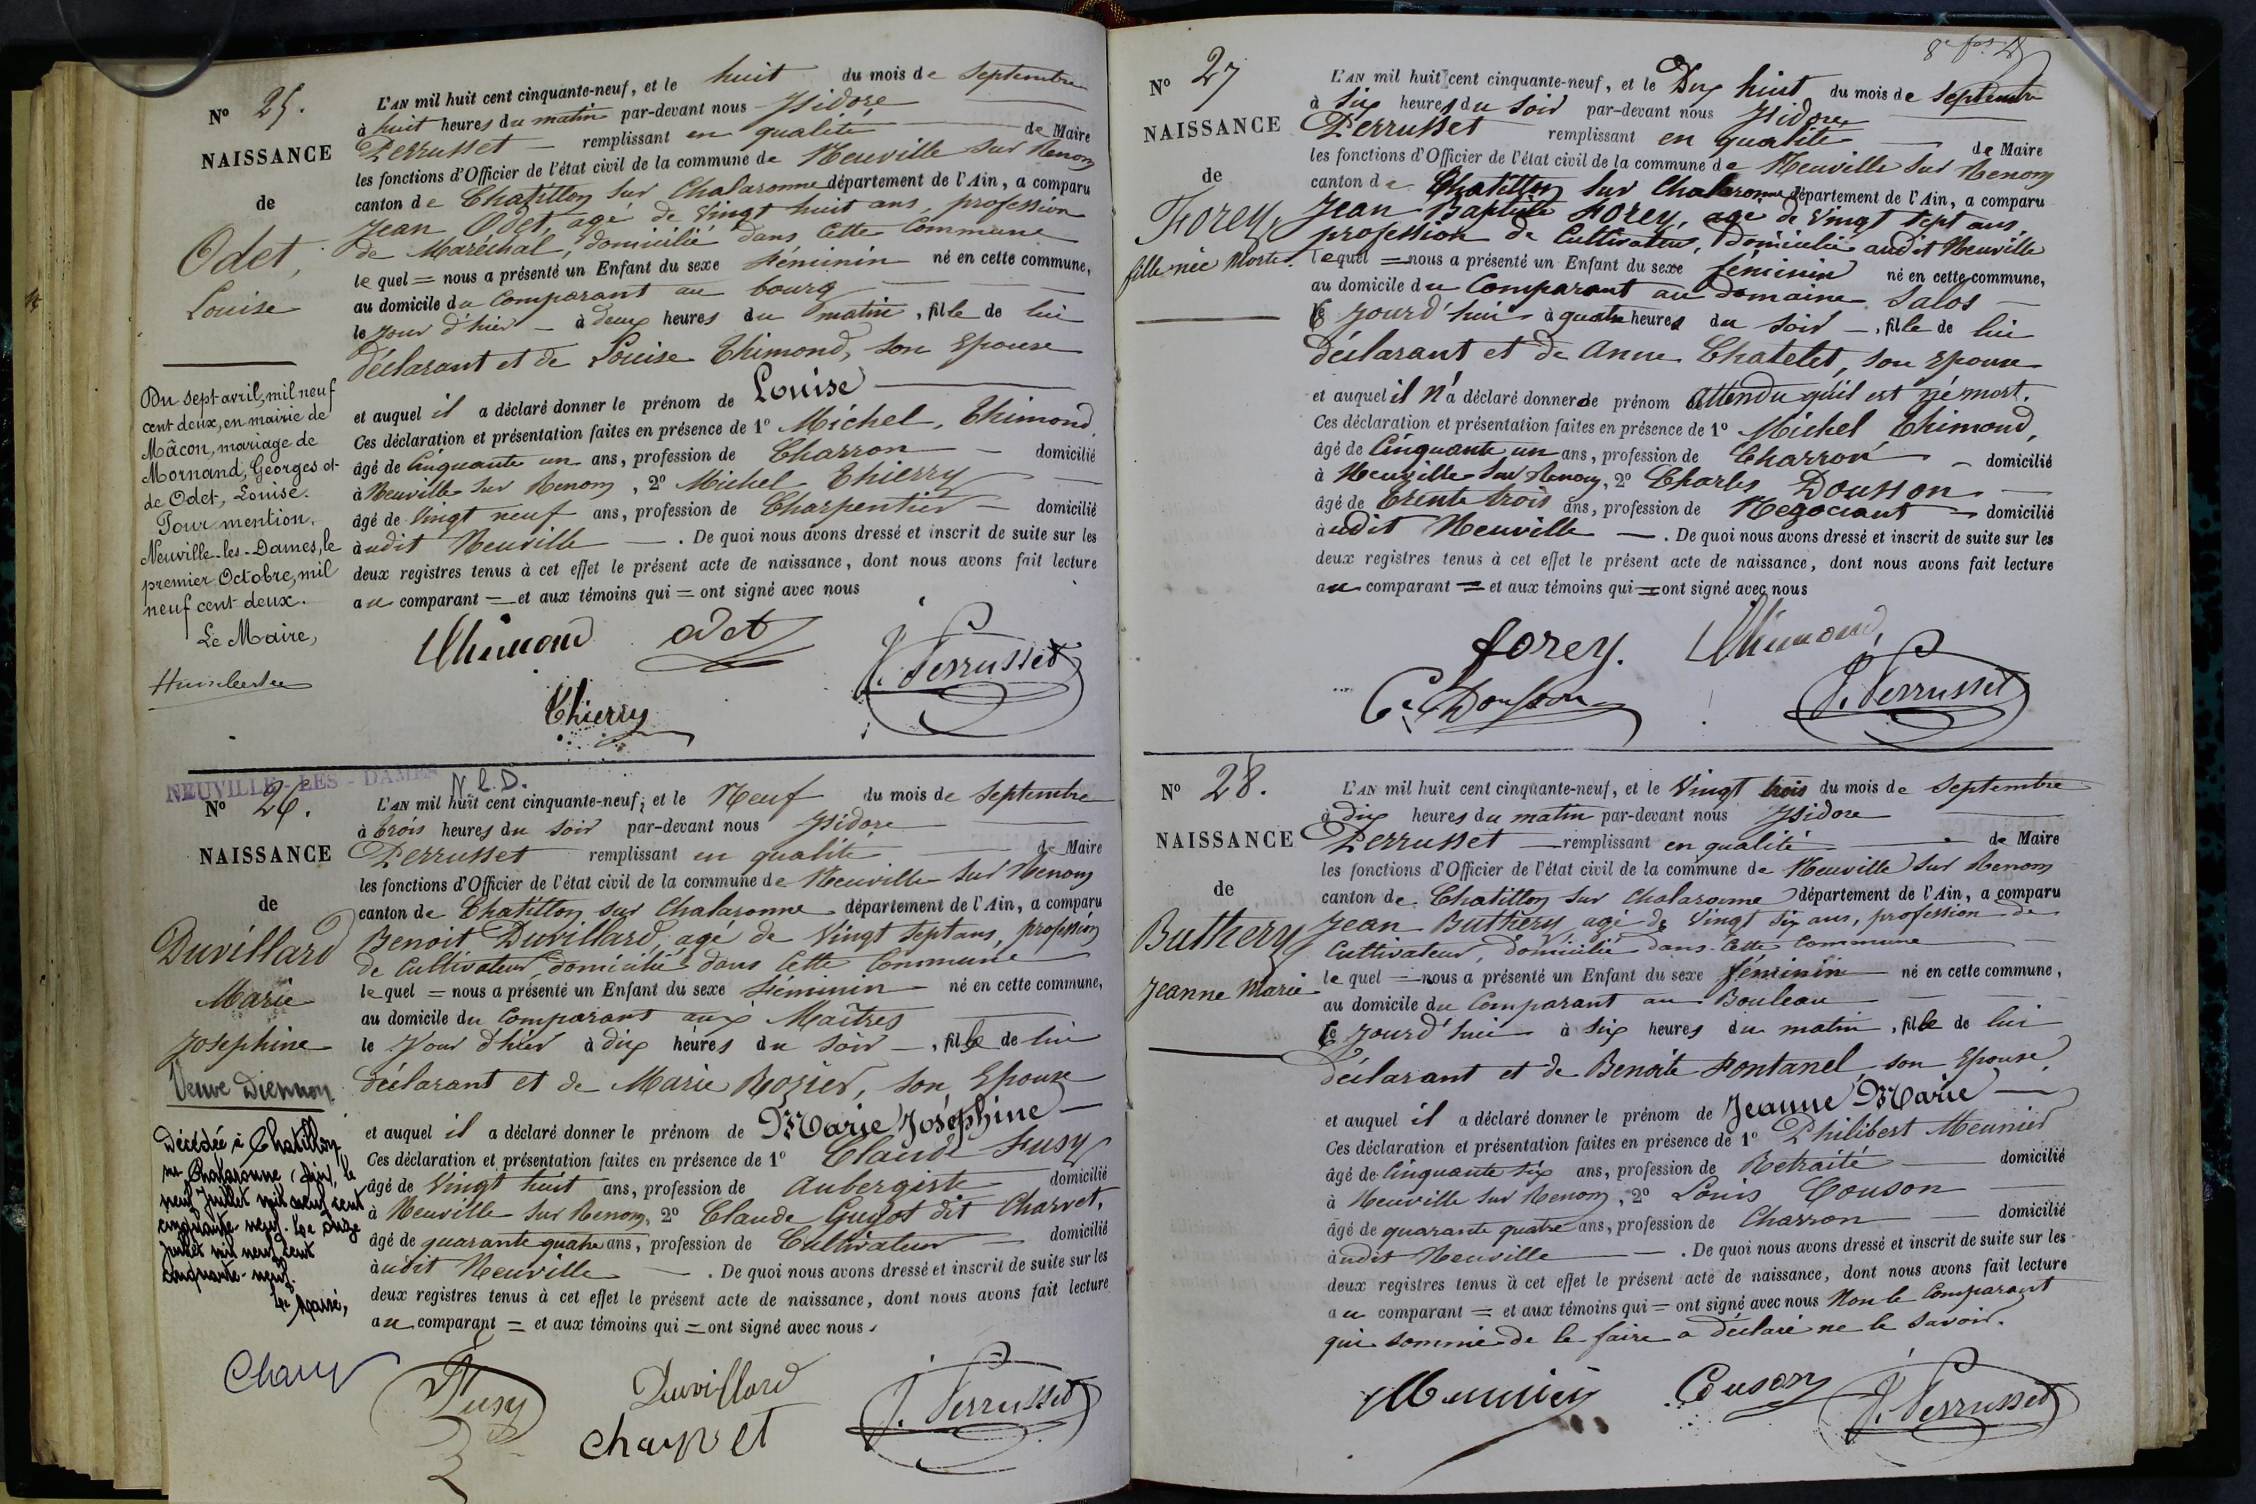 N° 25.
NAISSANCE
de
Odet,
Louise
Du sept avril, mil neuf
cent deux, en mairie de
Mâcon, mariage de
Mornand, Georges et
de Odet, Louise.
Pour mention,
Neuville-les-Dames, le
premier Octobre, mil
neuf cent deux.
Le Maire,
L'AN mil huit cent cinquante-neuf, et le huit du mois de Septembre
à huit heures du matin par-devant nous Isidore
Perrusset remplissant en qualité de Maire
les fonctions d'Officier de l'état civil de la commune de Neuville sur Renom
canton de Chatillon sur Chalaronne département de l'Ain, a comparu
Jean Odet, agé de vingt huit ans, profession
de Maréchal, domicilié dans cette Commune
lequel = nous a présenté un Enfant du sexe féminin né en cette commune,
au domicile du comparant au bourg
le jour d'hier à deux heures du matin, fille de lui
déclarant et de Louise Thimond, son Epouse
et auquel il a déclaré donner le prénom de Louise
Ces déclaration et présentation faites en présence de 1° Michel Thimond,
âgé de Cinquante un ans, profession de Charron domicilié
à Neuville sur Renom, 2° Michel Thierry
âgé de vingt neuf ans, profession de Charpentier domicilié
audit Neuville. De quoi nous avons dressé et inscrit de suite sur les
deux registres tenus à cet effet le présent acte de naissance, dont nous avons fait lecture
au comparant = et aux témoins qui = ont signé avec nous
Thimond Odet
J. Perrusset
Thierry
NEUVILLE-LES-DAMES
N.L.D.
N° 26.
NAISSANCE
de
Duvillard
Marie
Josephine
Veuve Diennon
Décédée à Chatillon
sur Chalaronne (Ain), le
neuf Juillet mil neuf cent
cinquante-neuf. Le onze
Juillet mil neuf cent
cinquante-neuf.
Le Maire,
L'AN mil huit cent cinquante-neuf, et le Neuf du mois de Septembre
à trois heures du soir par-devant nous Isidore
Perrusset remplissant en qualité de Maire
les fonctions d'Officier de l'état civil de la commune de Neuville sur Renom
canton de Chatillon sur Chalaronne département de l'Ain, a comparu
Benoit Duvillard, agé de vingt sept ans, profession
de Cultivateur, domicilié dans cette Commune
lequel = nous a présenté un Enfant du sexe féminin né en cette commune,
au domicile du Comparant aux Maîtres
le jour d'hier à dix heures du soir, fille de lui
déclarant et de Marie Rozier, son Epouse
et auquel il a déclaré donner le prénom de Marie Joséphine
Ces déclaration et présentation faites en présence de 1° Claude Fusy
âgé de vingt huit ans, profession de Aubergiste domicilié
à Neuville sur Renom, 2° Claude Guyot dit Charvet,
âgé de quarante quatre ans, profession de Cultivateur domicilié
audit Neuville. De quoi nous avons dressé et inscrit de suite sur les
deux registres tenus à cet effet le présent acte de naissance, dont nous avons fait lecture
au comparant = et aux témoins qui = ont signé avec nous
Fusy Duvillard
Charvet
J. Perrusset
N° 27
NAISSANCE
de
Forey,
fille née Morte.
L'AN mil huit cent cinquante-neuf, et le Dix huit du mois de Septembre
à six heures du soir par-devant nous Isidore
Perrusset remplissant en qualité de Maire
les fonctions d'Officier de l'état civil de la commune de Neuville sur Renom
canton de Chatillon sur Chalaronne département de l'Ain, a comparu
Jean Baptiste Forey, agé de vingt sept ans,
profession de Cultivateur, domicilié audit Neuville
lequel = nous a présenté un Enfant du sexe féminin né en cette commune,
au domicile du Comparant au domaine Salos
Ce jourd'hui à quatre heures du soir, fille de lui
déclarant et de Anne Chatelet, son Epouse
et auquel il n'a déclaré donner de prénom attendu qu'il est né mort.
Ces déclaration et présentation faites en présence de 1° Michel Thimond,
âgé de Cinquante un ans, profession de Charron domicilié
à Neuville sur Renom, 2° Charles Dousson
âgé de trente trois ans, profession de Negociant domicilié
audit Neuville. De quoi nous avons dressé et inscrit de suite sur les
deux registres tenus à cet effet le présent acte de naissance, dont nous avons fait lecture
au comparant = et aux témoins qui = ont signé avec nous
forey. Thimond
Ces Dousson
J. Perrusset
N° 28.
NAISSANCE
de
Buthery
Jeanne Marie
L'AN mil huit cent cinquante-neuf, et le Vingt trois du mois de Septembre
à dix heures du matin par-devant nous Isidore
Perrusset remplissant en qualité de Maire
les fonctions d'Officier de l'état civil de la commune de Neuville sur Renom
canton de Chatillon sur Chalaronne département de l'Ain, a comparu
Jean Buthery, agé de vingt six ans, profession de
Cultivateur, domicilié dans cette Commune
lequel = nous a présenté un Enfant du sexe féminin né en cette commune,
au domicile du Comparant au Bouleau
Ce jourd'hui à six heures du matin, fille de lui
déclarant et de Benoite Fontanel, son Epouse,
et auquel il a déclaré donner le prénom de Jeanne Marie
Ces déclaration et présentation faites en présence de 1° Philibert Meunier
âgé de Cinquante six ans, profession de Retraité domicilié
à Neuville sur Renom, 2° Louis Couson
âgé de quarante quatre ans, profession de Charron domicilié
audit Neuville. De quoi nous avons dressé et inscrit de suite sur les
deux registres tenus à cet effet le présent acte de naissance, dont nous avons fait lecture
au comparant = et aux témoins qui = ont signé avec nous Non le Comparant
qui sommé de le faire a déclaré ne le savoir.
Meunier Couson
J. Perrusset